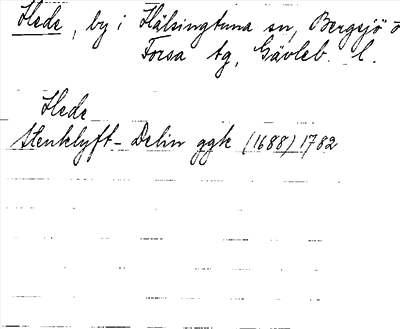 Hede, by i Hälsingtuna sn, Bergsjö o
Forsa tg, Gävleb. l.
Hede
Stenklyft - Delin ggk (1688) 1782